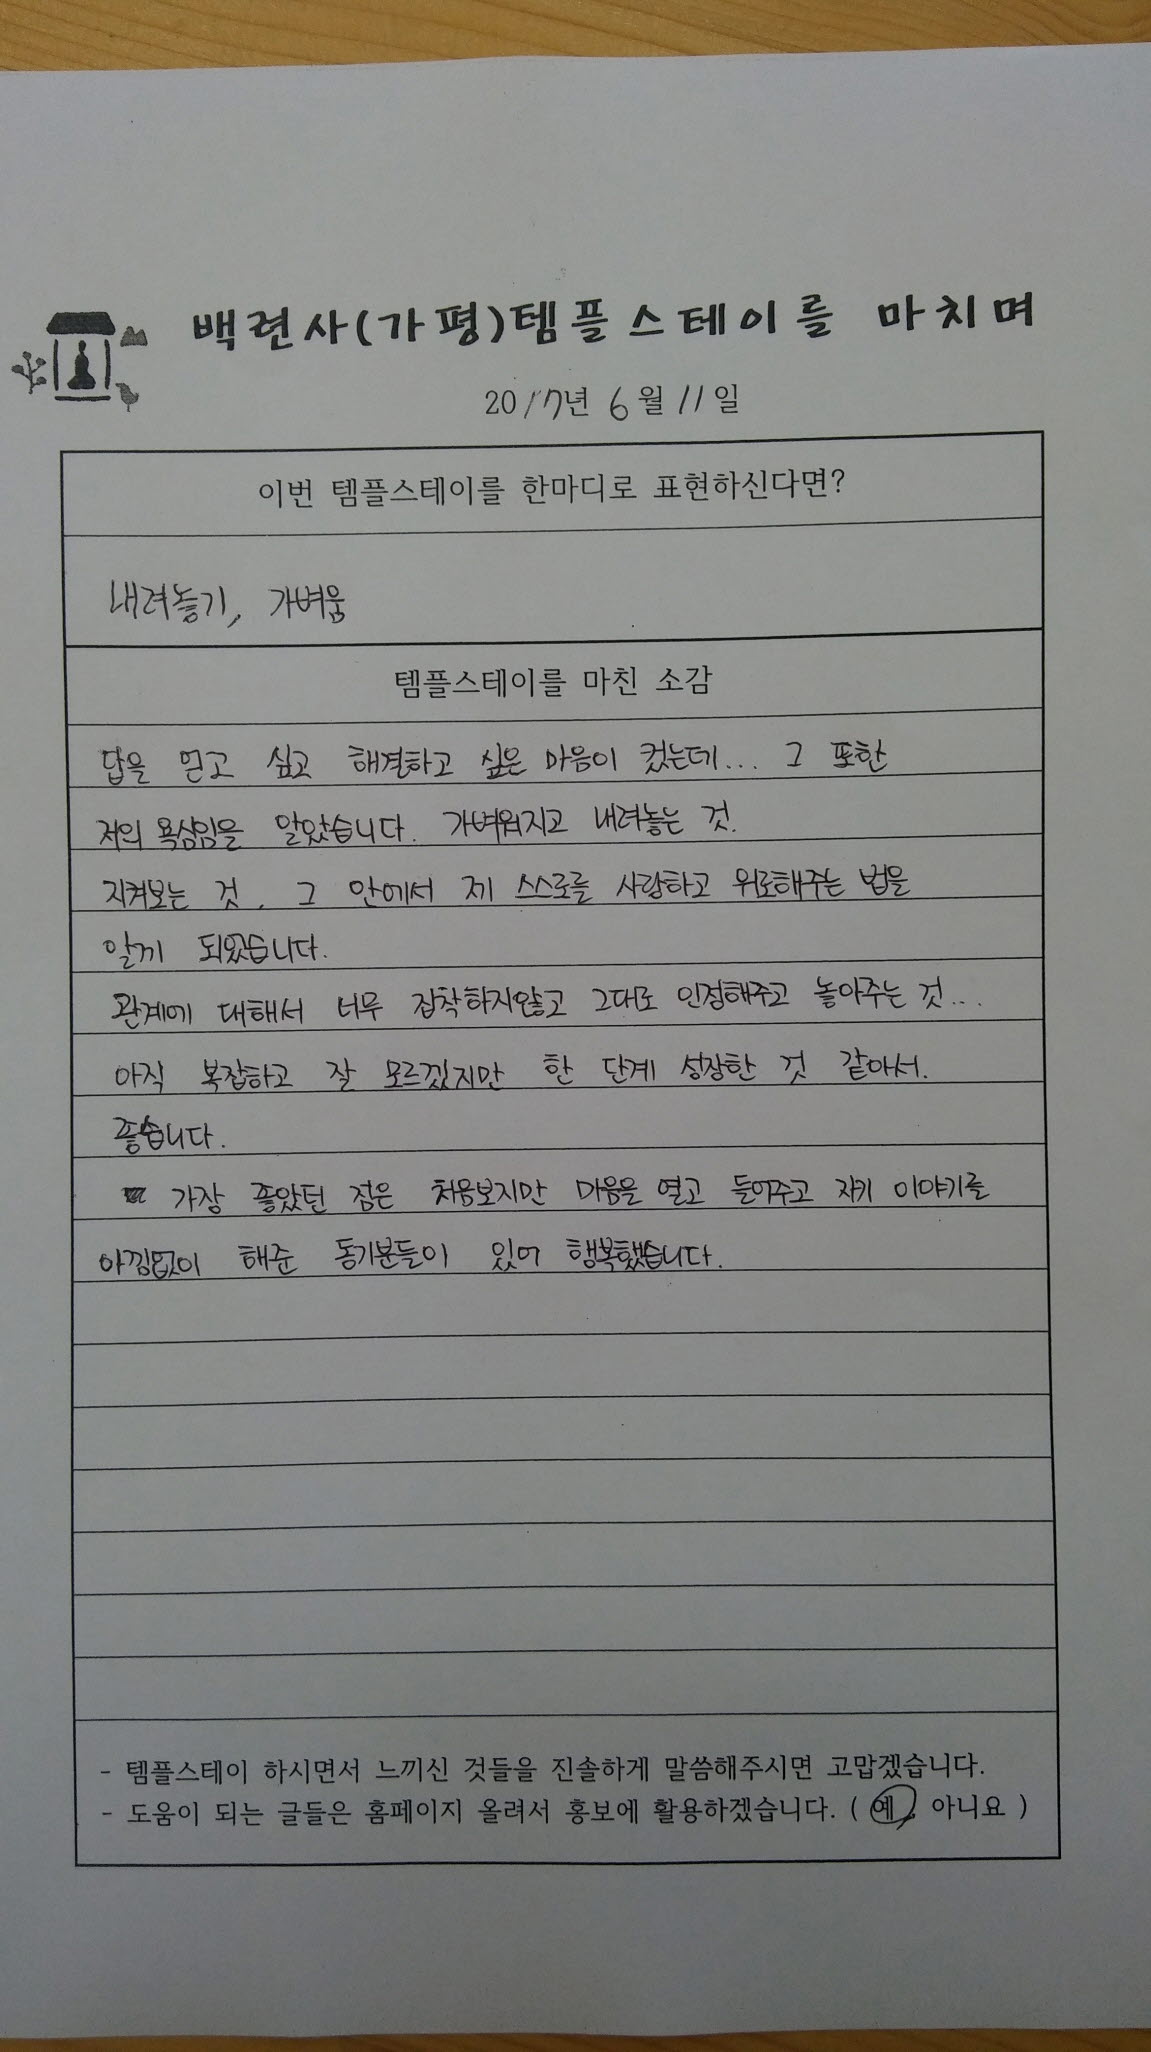 백련사(가평)템플스테이를 마치며
2017년 6월 11일
이번 템플스테이를 한마디로 표현하신다면?
내려놓기, 가벼움
템플스테이를 마친 소감
답을 얻고 싶고 해결하고 싶은 마음이 컸는데... 그 또한
저의 욕심임을 알았습니다. 가벼워지고 내려놓는 것.
지켜보는 것. 그 안에서 제 스스로를 사랑하고 위로해주는 법을
알게 되었습니다.
관계에 대해서 너무 집착하지않고 그대로 인정해주고 놓아주는 것...
아직 복잡하고 잘 모르겠지만 한 단계 성장한 것 같아서.
좋습니다.
가장 좋았던 점은 처음보지만 마음을 열고 들어주고 자기 이야기를
아낌없이 해준 동기분들이 있어 행복했습니다.
- 템플스테이 하시면서 느끼신 것들을 진솔하게 말씀해주시면 고맙겠습니다.
- 도움이 되는 글들은 홈페이지 올려서 홍보에 활용하겠습니다. ( 예, 아니요 )